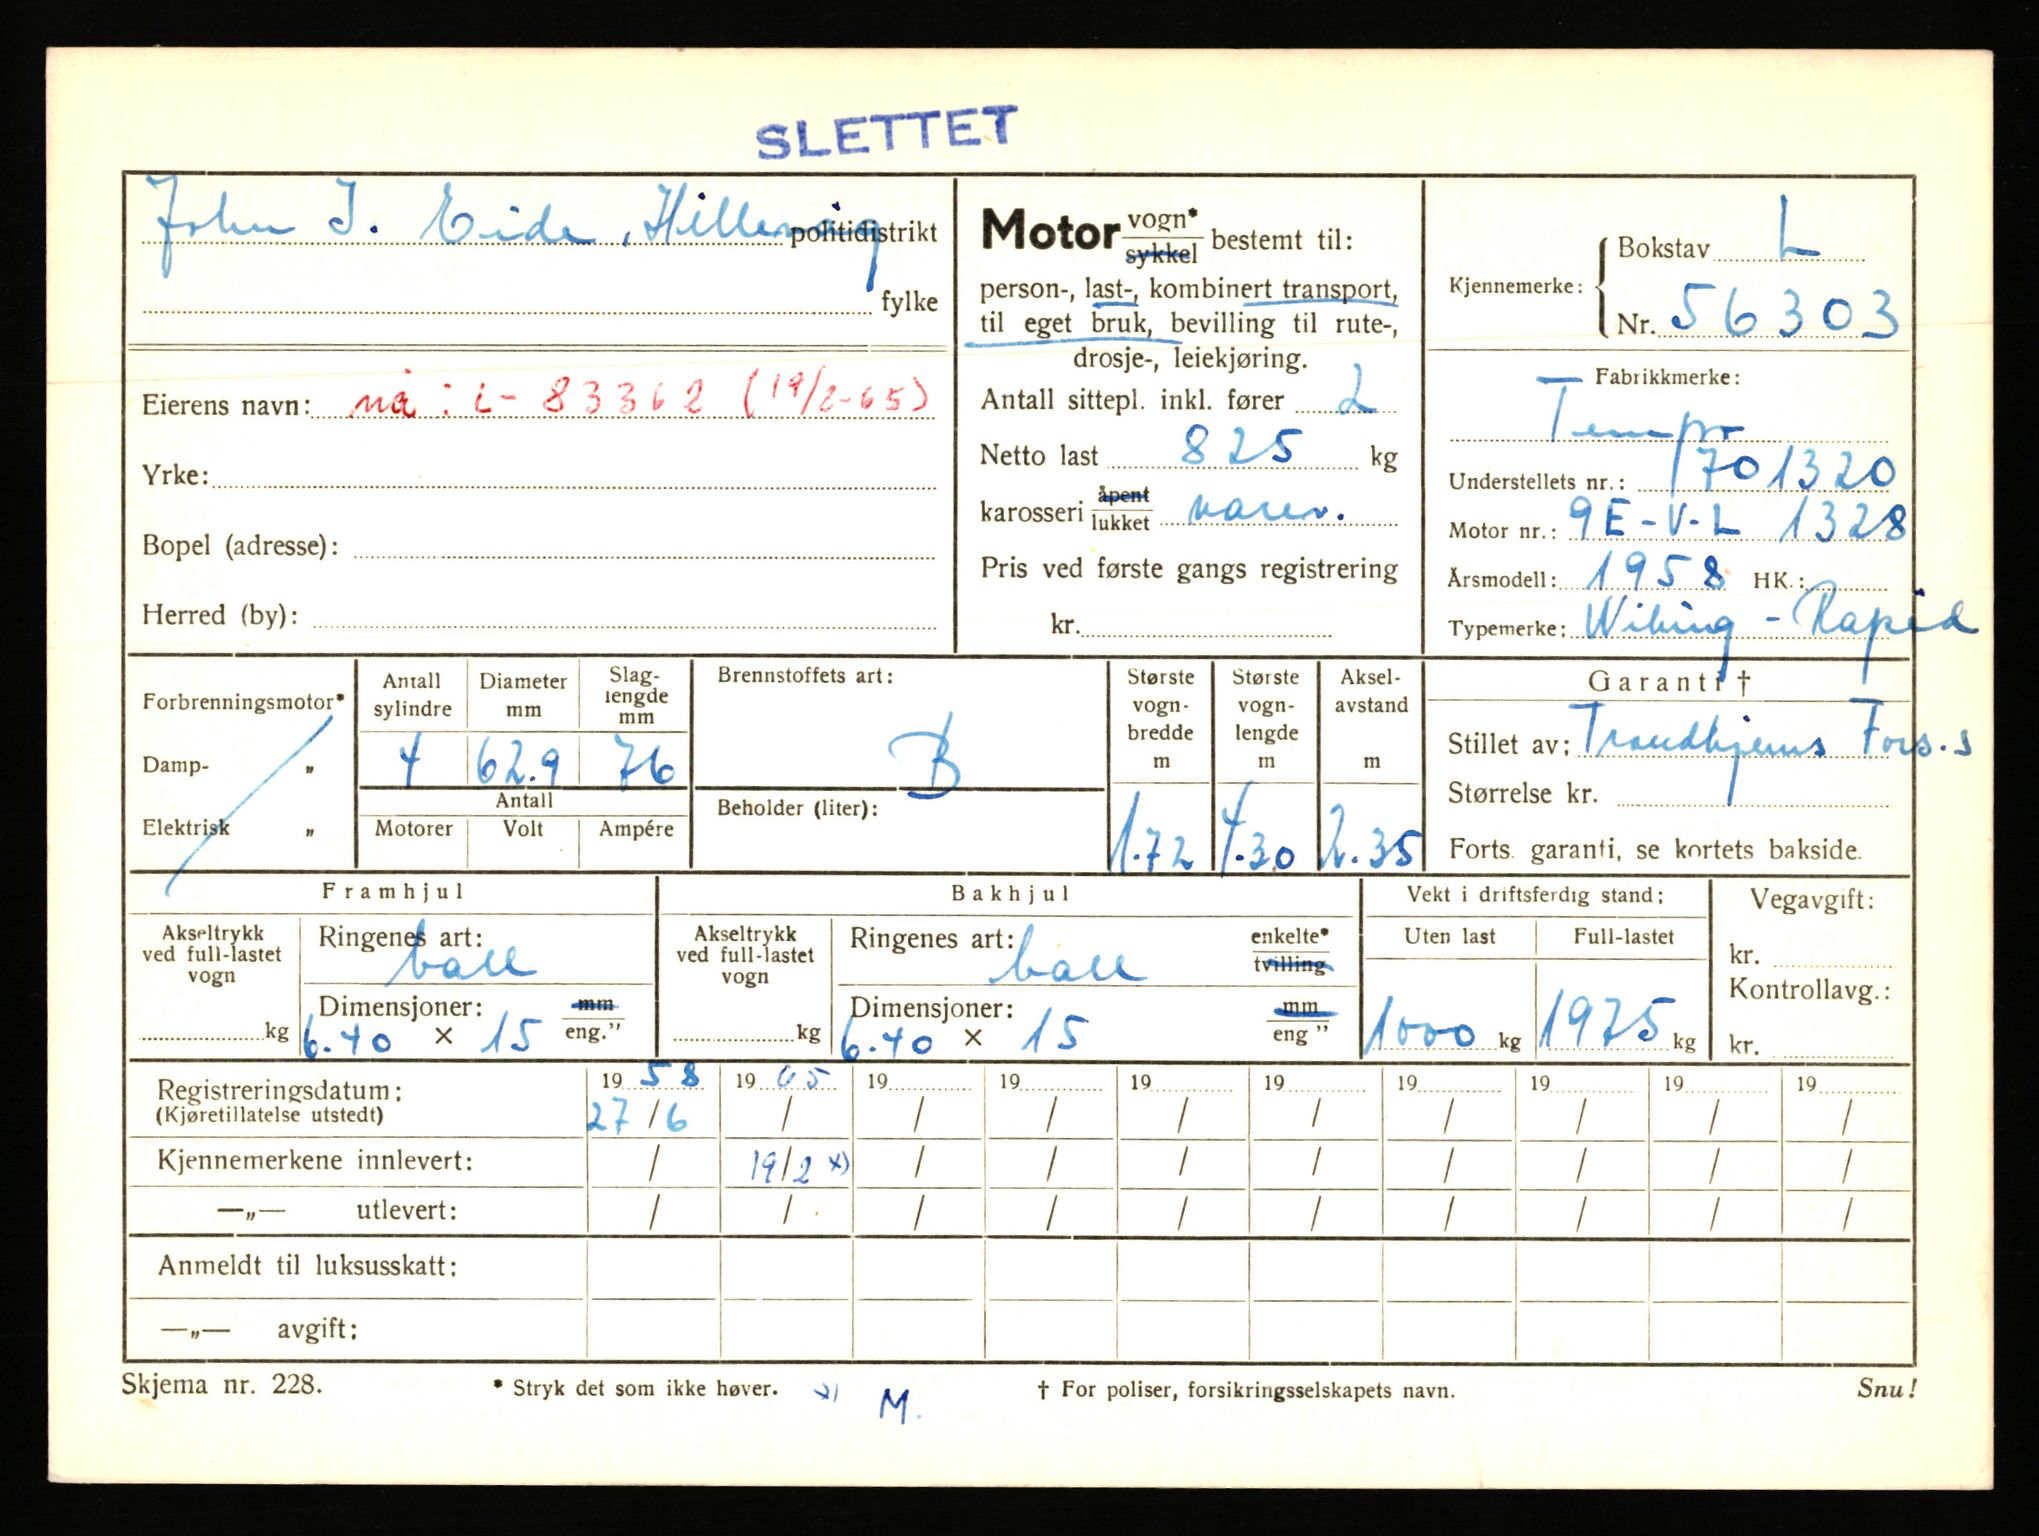 SLETTET
John I. Eide, Hillevåg politidistrikt
fylke
Eierens navn: nå: L- 83362 (19/2-65)
Yrke:
Bopel (adresse):
Herred (by):
Motor vogn* sykkel bestemt til:
person-, last-, kombinert transport,
til eget bruk, bevilling til rute-,
drosje-, leiekjøring.
Antall sittepl. inkl. fører 2
Netto last 825 kg
karosseri åpent lukket varev.
Pris ved første gangs registrering
kr.
Kjennemerke: Bokstav L
Nr. 56303
Fabrikkmerke:
Tempo
Understellets nr.: 1701320
Motor nr.: 9E-V-L 1328
Årsmodell: 1958 HK.:
Typemerke: Wiking - Rapid
Forbrenningsmotor*
Damp- „
Elektrisk „
Antall sylindre 4
Diameter mm 62.9
Slaglengde mm 76
Antall
Motorer Volt Ampére
Brennstoffets art: B
Beholder (liter):
Største vogn- bredde m 1.72
Største vogn- lengde m 4.30
Aksel- avstand m 2.35
Garanti †
Stillet av: Trondhjems Fors.s
Størrelse kr.
Forts. garanti, se kortets bakside.
Framhjul
Akseltrykk ved full-lastet vogn kg
Ringenes art: ball
Dimensjoner: mm
6.40 × 15 eng.”
Bakhjul
Akseltrykk ved full-lastet vogn kg
Ringenes art: ball enkelte* tvilling
Dimensjoner: mm
6.40 × 15 eng ”
Vekt i driftsferdig stand:
Uten last Full-lastet
1000 kg 1975 kg
Vegavgift:
kr.
Kontrollavg.:
kr.
Registreringsdatum: 19 58 19 65 19 19 19 19 19 19 19 19
(Kjøretillatelse utstedt) 27/6 / / / / / / / / /
Kjennemerkene innlevert: / 19/2 x) / / / / / / / /
—„— utlevert: / / / / / / / / / /
Anmeldt til luksusskatt:
—„— avgift:
Skjema nr. 228. * Stryk det som ikke høver. x) M. † For poliser, forsikringsselskapets navn. Snu!